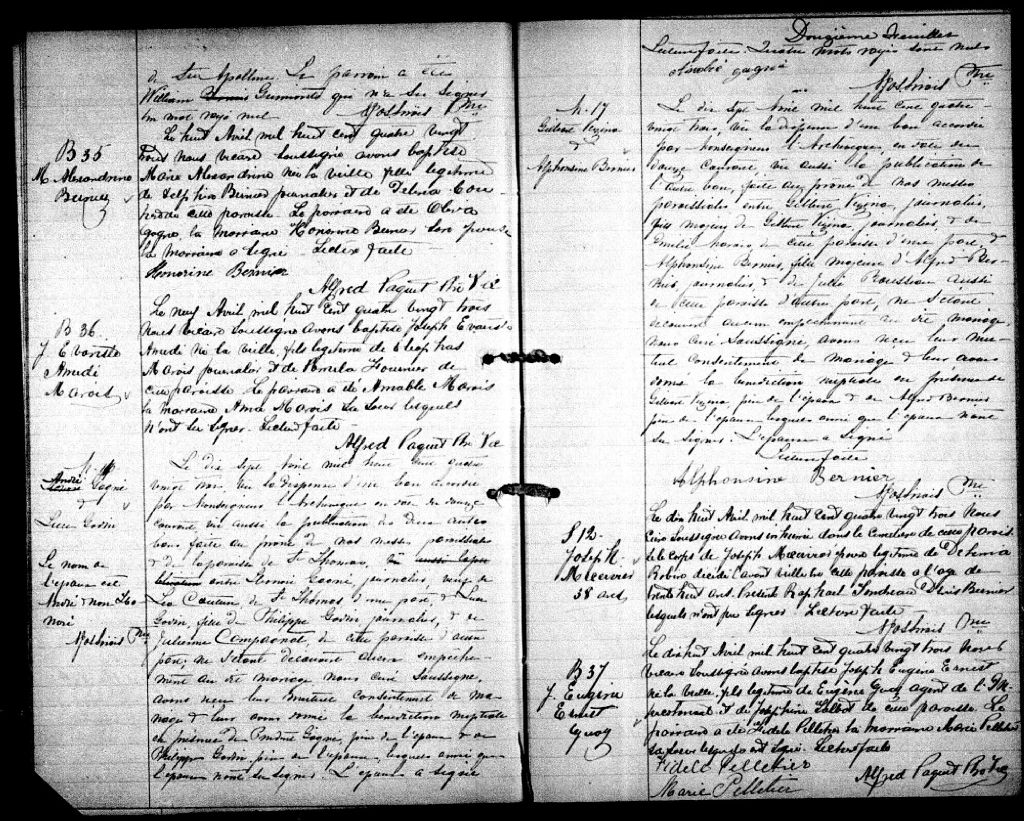 de Ste Apolline. Le parrain a été
William Guimonts qui n'a su signer
un mot rayé nul.
B 35
M. Alexandrine
Bernier
Le huit Avril mil huit cent quatre vingt
trois nous vicaire soussigné avons baptisé
Marie Alexandrine née la veille fille légitime
de Delphis Bernier journalier et de Delima
de cette paroisse. Le parrain a été
Gagné la marraine Honorine Bernier son épouse
la marraine a signé. Lecture faite
Honorine Bernier
Alfred Paquet Ptre Vic
B 36.
J. Evariste
Amedé
Marois
Le neuf Avril mil huit cent quatre vingt trois
nous vicaire soussigné avons baptisé Joseph Evariste
Amedé né la veille, fils légitime de Cléophas
Marois journalier et de Fournier de
cette paroisse. Le parrain a été Amable Marois
la marraine Anna Marois sa soeur lesquels
n'ont su signer. Lecture faite
Alfred Paquet Ptre Vic
André
Gagné
&
Luce Godin
Le nom de
l'époux est
André & non Léo
noré
Le dix sept Avril mil huit cent quatre
vingt trois, vu la dispense d'un ban accordée
par Monseigneur l'Archevêque en date du douze
courant vu aussi la publication de deux autres
bans faite au prône de nos messes paroissiales
& de la paroisse de St Thomas,
entre Gagné, journalier, veuf de
Léa Couture de St Thomas d'une part, & Luce
Godin, fille de Philippe Godin journalier, & de
Julienne Compagnat, de cette paroisse d'autre
part; ne s'étant découvert aucun empêche-
ment au dit mariage nous Curé Soussigné,
avons reçu leur mutuel consentement de ma-
riage & leur avons donné la bénédiction nuptiale
en présence de Gagné, père de l'époux & de
Philippe Godin, père de l'épouse, lesquels ainsi que
l'époux n'ont su signer. L'épouse a signé
Douzième feuillet
Lecture faite. Quatre mots rayés sont nuls
gagné
M. 17
Gilbert Vezina
&
Alphonsine Bernier
Le dix sept Avril mil huit cent quatre
vingt trois, vu la dispense d'un ban accordée
par Monseigneur l'Archevêque, en date du
douze courant, vu aussi la publication de
l'autre ban, faite au prône de nos messes
paroissiales entre Gilbert Vezina, journalier,
fils majeur de Gilbert Vezina, journalier, & de
Emilie de cette paroisse d'une part, &
Alphonsine Bernier, fille mineure d'Alfred Ber-
nier, journalier, & de Julie Rousseau aussi
de cette paroisse d'autre part, ne s'étant
découvert aucun empêchement au dit mariage,
nous Curé Soussigné, avons reçu leur mu-
tuel consentement de mariage & leur avons
donné la bénédiction nuptiale en présence de
Gilbert Vezina père de l'époux & de Alfred Bernier
père de l'épouse lesquels ainsi que l'époux n'ont
su signer. L'épouse a signé
Lecture faite
Alphonsine Bernier
S 12.
Joseph
38 ans
Le dix huit Avril mil huit cent quatre vingt trois nous
Curé soussigné avons inhumé dans le cimetière de cette paroisse
le corps de Joseph époux légitime de Delima
décédé l'avant veille en cette paroisse à l'age de
trente huit ans. Présents Raphael Bernier
lesquels n'ont pu signer. Lecture faite
B 37
J. Eugène
Ernest
Le dix huit Avril mil huit cent quatre vingt trois nous
vicaire soussigné avons baptisé Joseph Eugène Ernest
né la veille, fils légitime de Eugène agent de l'
et de Joséphine Talbot de cette paroisse. Le
parrain a été Fidele Pelletier la marraine Marie Pelletier
sa soeur lesquels ont signé. Lecture faite
Fidele Pelletier
Marie Pelletier
Alfred Paquet Ptre Vic